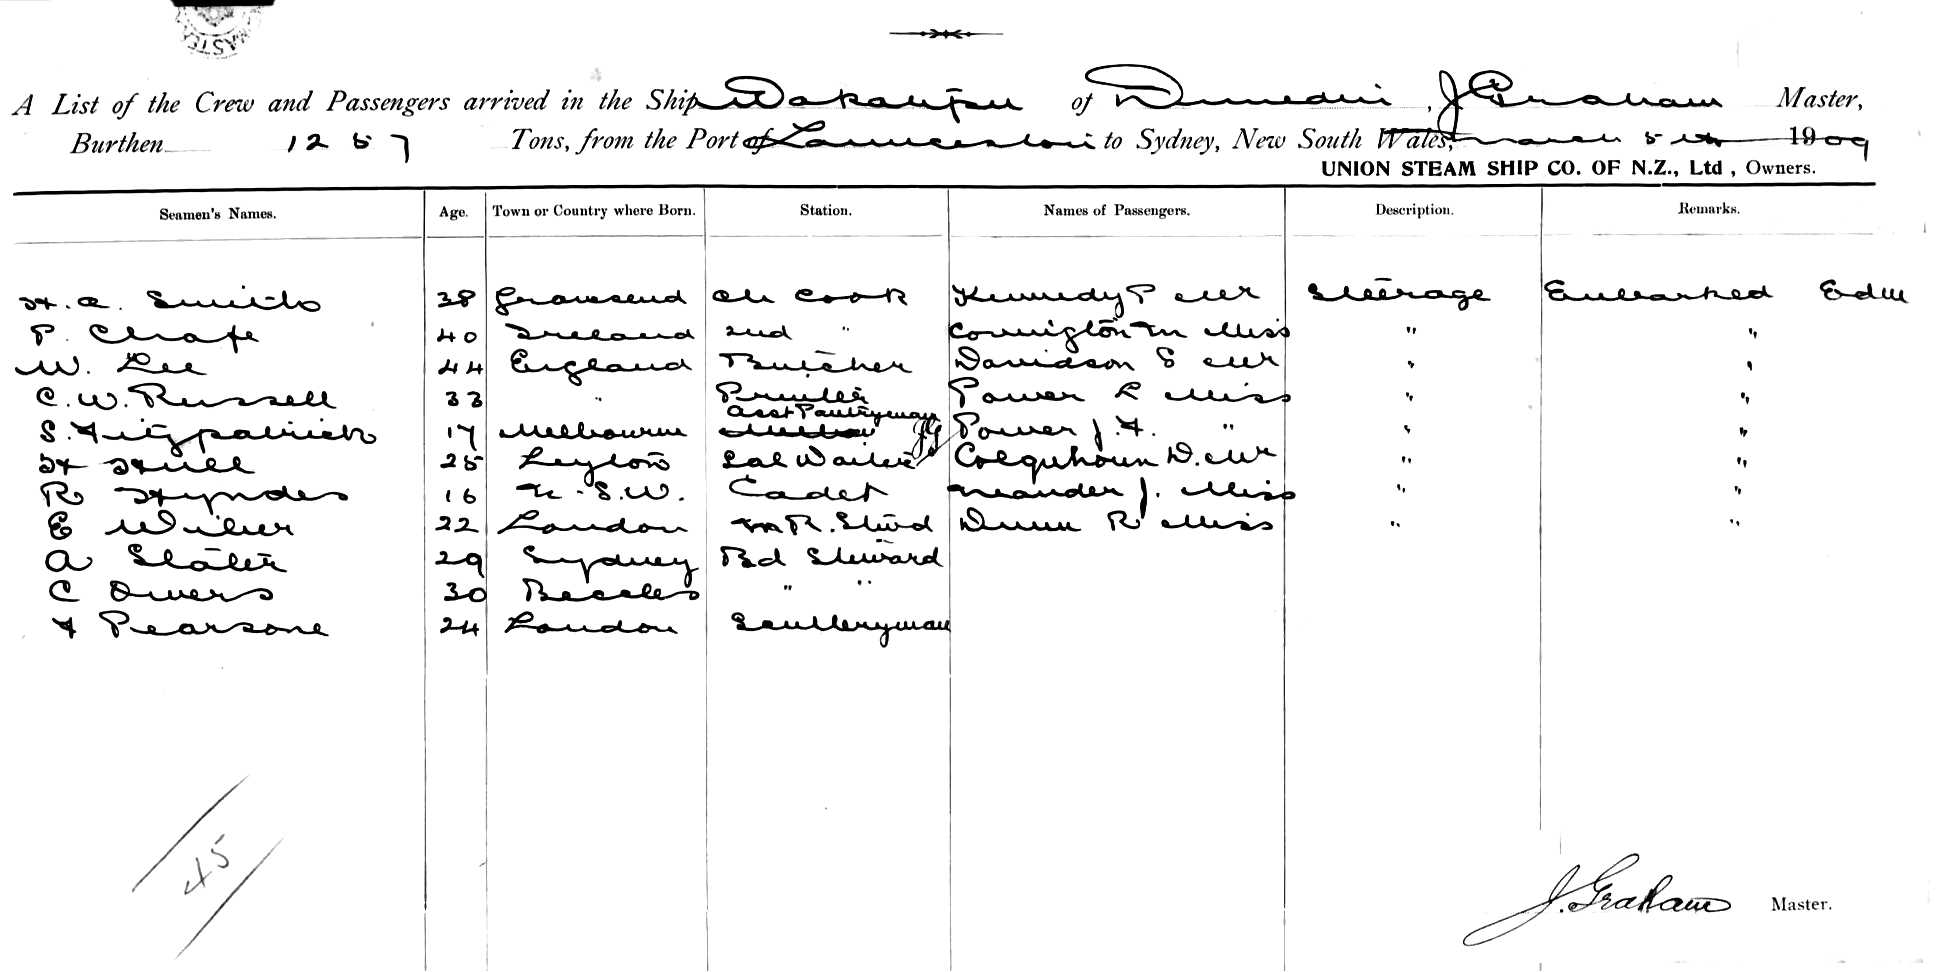 MASTER
A List of the Crew and Passengers arrived in the Ship Wakatipu of Dunedin, J Graham Master,
Burthen 1257 Tons, from the Port of Launceston to Sydney, New South Wales, March 5th 1909
UNION STEAM SHIP CO. OF N.Z., Ltd, Owners.
Seamen's Names. Age. Town or Country where Born. Station. Names of Passengers. Description. Remarks.
H. A. Smith 38 Gravesend Ch Cook Kennedy P Mr Steerage Embarked Edm
P. Chafe 40 Ireland 2nd " Connington M Miss " "
W. Lee 44 England Butcher Davidson S Mr " "
C. W. Russell 33 " Power L Miss " "
Asst Pantryman
S. Fitzpatrick 17 Melbourne JG Power J. F. " " "
H Hull 25 Leyton Sal Waiter Colquhoun D. Mr " "
R Hyndes 16 N.S.W. Cadet J. Miss " "
E Wilier 22 London M R. Stwd Dunn R Miss " "
A Slater 29 Sydney Bd Steward
C Owers 30 Beccles " "
F Pearsone 24 London Sculleryman
45
J. Graham Master.